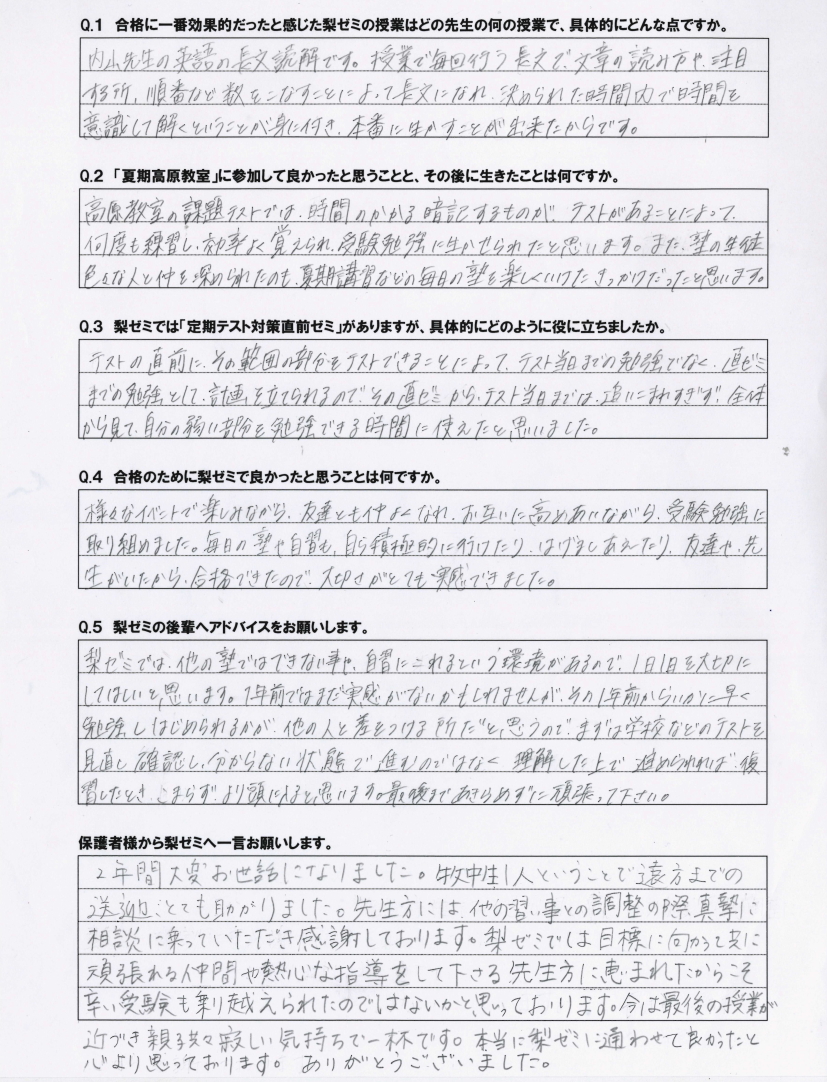 Q.1 合格に一番効果的だったと感じた梨ゼミの授業はどの先生の何の授業で、具体的にどんな点ですか。
内山先生の英語の長文読解です。授業で毎回行う長文で、文章の読み方や、注目
する所、順番など数をこなすことによって長文になれ、決められた時間内で時間を
意識して解くということが身に付き、本番に生かすことが出来たからです。
Q.2 「夏期高原教室」に参加して良かったと思うことと、その後に生きたことは何ですか。
高原教室の課題テストでは、時間のかかる暗記するものが、テストがあることによって、
何度も練習し、効率よく覚えられ、受験勉強に生かせられたと思います。また、塾の生徒
色々な人と仲を深められたのも、夏期講習などの毎日の塾を楽しくいけたきっかけだったと思います。
Q.3 梨ゼミでは「定期テスト対策直前ゼミ」がありますが、具体的にどのように役に立ちましたか。
テストの直前に、その範囲の部分をテストできることによって、テスト当日までの勉強でなく、直ゼミ
までの勉強として、計画を立てられるので、その直ゼミから、テスト当日までは、追いこまれすぎず、全体
から見て、自分の弱い部分を勉強できる時間に使えたと、思いました。
Q.4 合格のために梨ゼミで良かったと思うことは何ですか。
様々なイベントで楽しみながら、友達とも仲よくなれ、お互いに高めあいながら、受験勉強に
取り組めました。毎日の塾や自習も、自ら積極的に行けたり、はげましあえたり、友達や、先
生がいたから、合格できたので、大切さがとても実感できました。
Q.5 梨ゼミの後輩へアドバイスをお願いします。
梨ゼミでは、他の塾ではできない事や、自習にこれるという環境があるので、1日1日を大切に
してほしいと、思います。1年前ではまだ実感がないかもしれませんが、その1年前からいかに早く
勉強しはじめられるかが、他の人と差をつける所だと思うので、まずは学校などのテストを
見直し確認し、分からない状態で進むのではなく理解した上で進められれば、復
習したとき、こまらず、より頭に入ると思います。最後まであきらめずに頑張って下さい。
保護者様から梨ゼミへ一言お願いします。
2年間大変お世話になりました。牧中生1人ということで遠方までの
送迎とても助かりました。先生方には他の習い事との調整の際真摯に
相談に乗っていただき感謝しております。梨ゼミでは目標に向かって共に
頑張れる仲間や熱心な指導をして下さる先生方に恵まれたからこそ
辛い受験も乗り越えられたのではないかと思っております。今は最後の授業が
近づき親子共々寂しい気持ちで一杯です。本当に梨ゼミに通わせて良かったと
心より思っております。ありがとうございました。